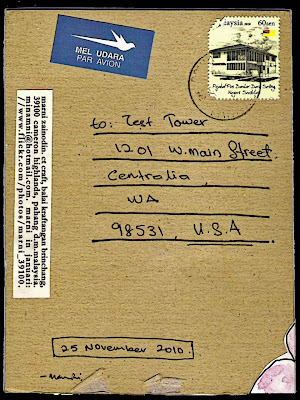 MEL UDARA
PAR AVION
malaysia
60sen
to: Test Tower
1201 W. Main Street
Centralia,
WA
98531, U.S.A
25 November 2010.
marni zainodin, ct craft, balai kraftangan brinchang,
39100 cameron highlands, pahang d.m. malaysia.
minamah@hotmail.com. marni in januari:
//www.flickr.com/photos/marni_39100.